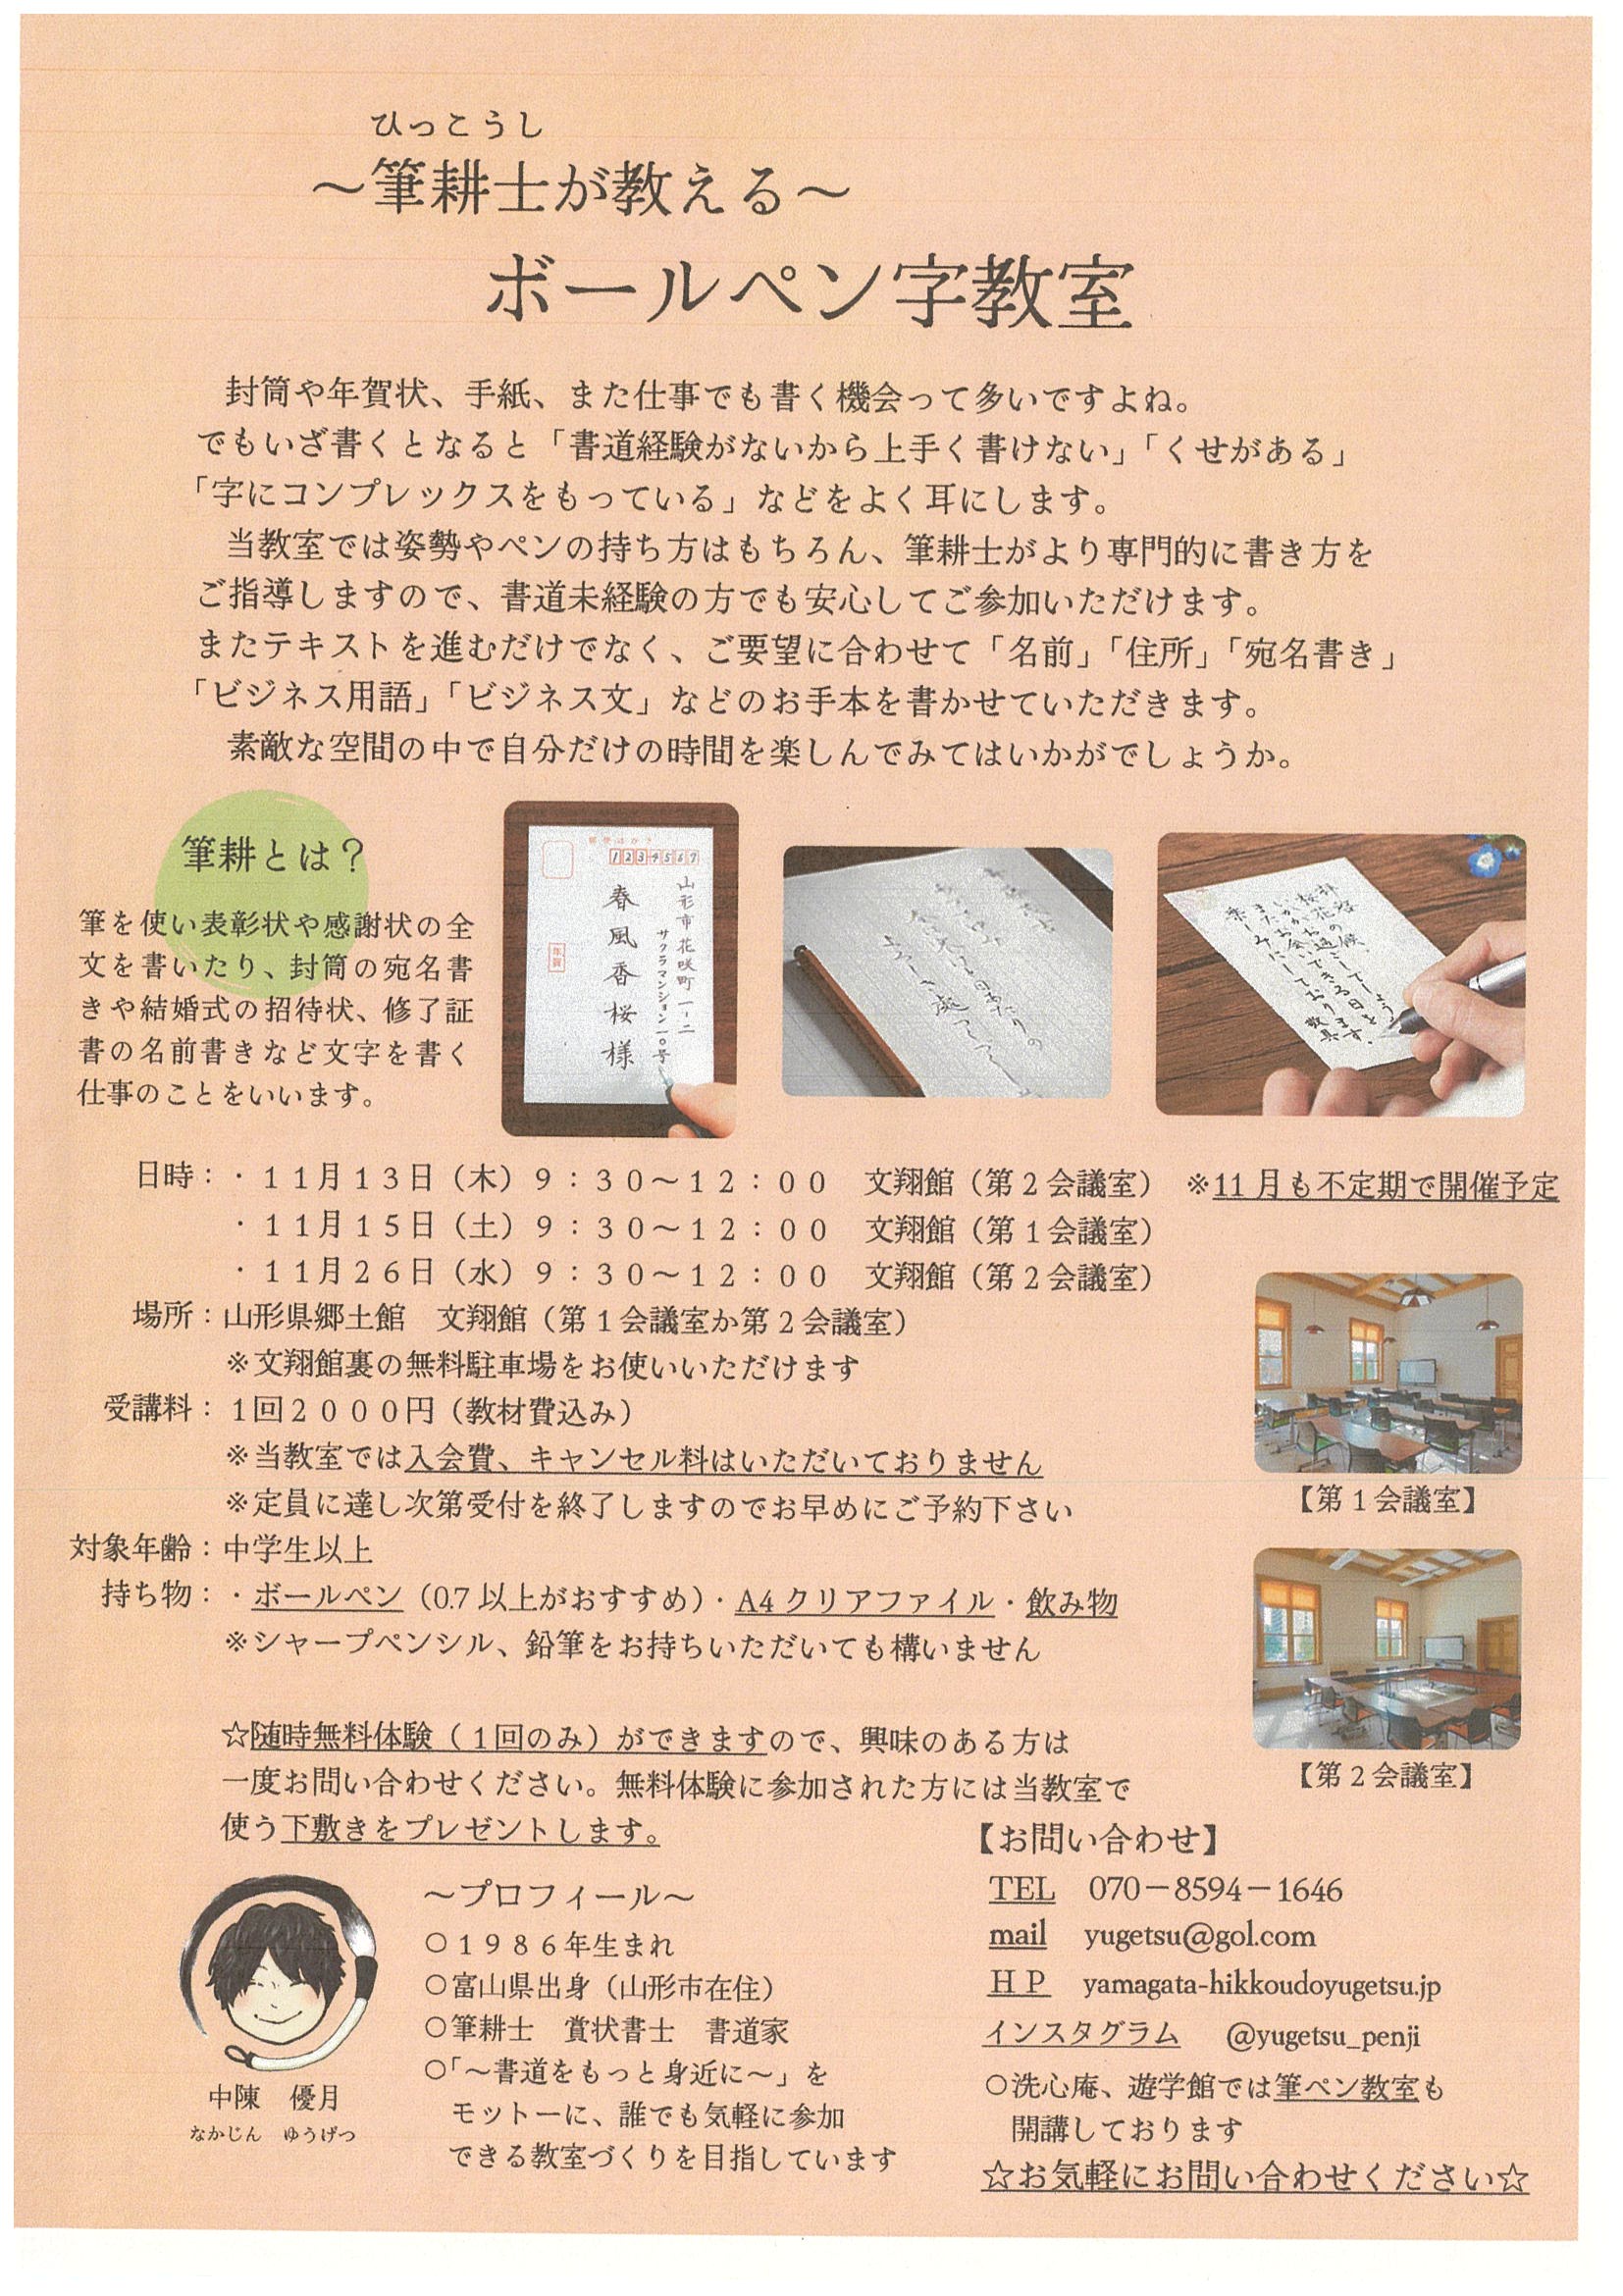 ひっこうし
～筆耕士が教える～
ボールペン字教室
封筒や年賀状、手紙、また仕事でも書く機会って多いですよね。
でもいざ書くとなると「書道経験がないから上手く書けない」「くせがある」
「字にコンプレックスをもっている」などをよく耳にします。
当教室では姿勢やペンの持ち方はもちろん、筆耕士がより専門的に書き方を
ご指導しますので、書道未経験の方でも安心してご参加いただけます。
またテキストを進むだけでなく、ご要望に合わせて「名前」「住所」「宛名書き」
「ビジネス用語」「ビジネス文」などのお手本を書かせていただきます。
素敵な空間の中で自分だけの時間を楽しんでみてはいかがでしょうか。
筆耕とは？
筆を使い表彰状や感謝状の全
文を書いたり、封筒の宛名書
きや結婚式の招待状、修了証
書の名前書きなど文字を書く
仕事のことをいいます。
郵便はがき
1234567
山形市花咲町一-二
サクラマンション一〇号
春風香桜様
年賀
日時：・１１月１３日（木）９：３０～１２：００　文翔館（第２会議室）　※11月も不定期で開催予定
・１１月１５日（土）９：３０～１２：００　文翔館（第１会議室）
・１１月２６日（水）９：３０～１２：００　文翔館（第２会議室）
場所：山形県郷土館　文翔館（第１会議室か第２会議室）
※文翔館裏の無料駐車場をお使いいただけます
受講料：１回２０００円（教材費込み）
※当教室では入会費、キャンセル料はいただいておりません
※定員に達し次第受付を終了しますのでお早めにご予約下さい
対象年齢：中学生以上
持ち物：・ボールペン（0.7以上がおすすめ）・A4クリアファイル・飲み物
※シャープペンシル、鉛筆をお持ちいただいても構いません
【第１会議室】
【第２会議室】
☆随時無料体験（１回のみ）ができますので、興味のある方は
一度お問い合わせください。無料体験に参加された方には当教室で
使う下敷きをプレゼントします。
中陳　優月
なかじん　ゆうげつ
～プロフィール～
○１９８６年生まれ
○富山県出身（山形市在住）
○筆耕士　賞状書士　書道家
○「～書道をもっと身近に～」を
モットーに、誰でも気軽に参加
できる教室づくりを目指しています
【お問い合わせ】
TEL　070－8594－1646
mail　yugetsu@gol.com
ＨＰ　yamagata-hikkoudoyugetsu.jp
インスタグラム　@yugetsu_penji
○洗心庵、遊学館では筆ペン教室も
開講しております
☆お気軽にお問い合わせください☆